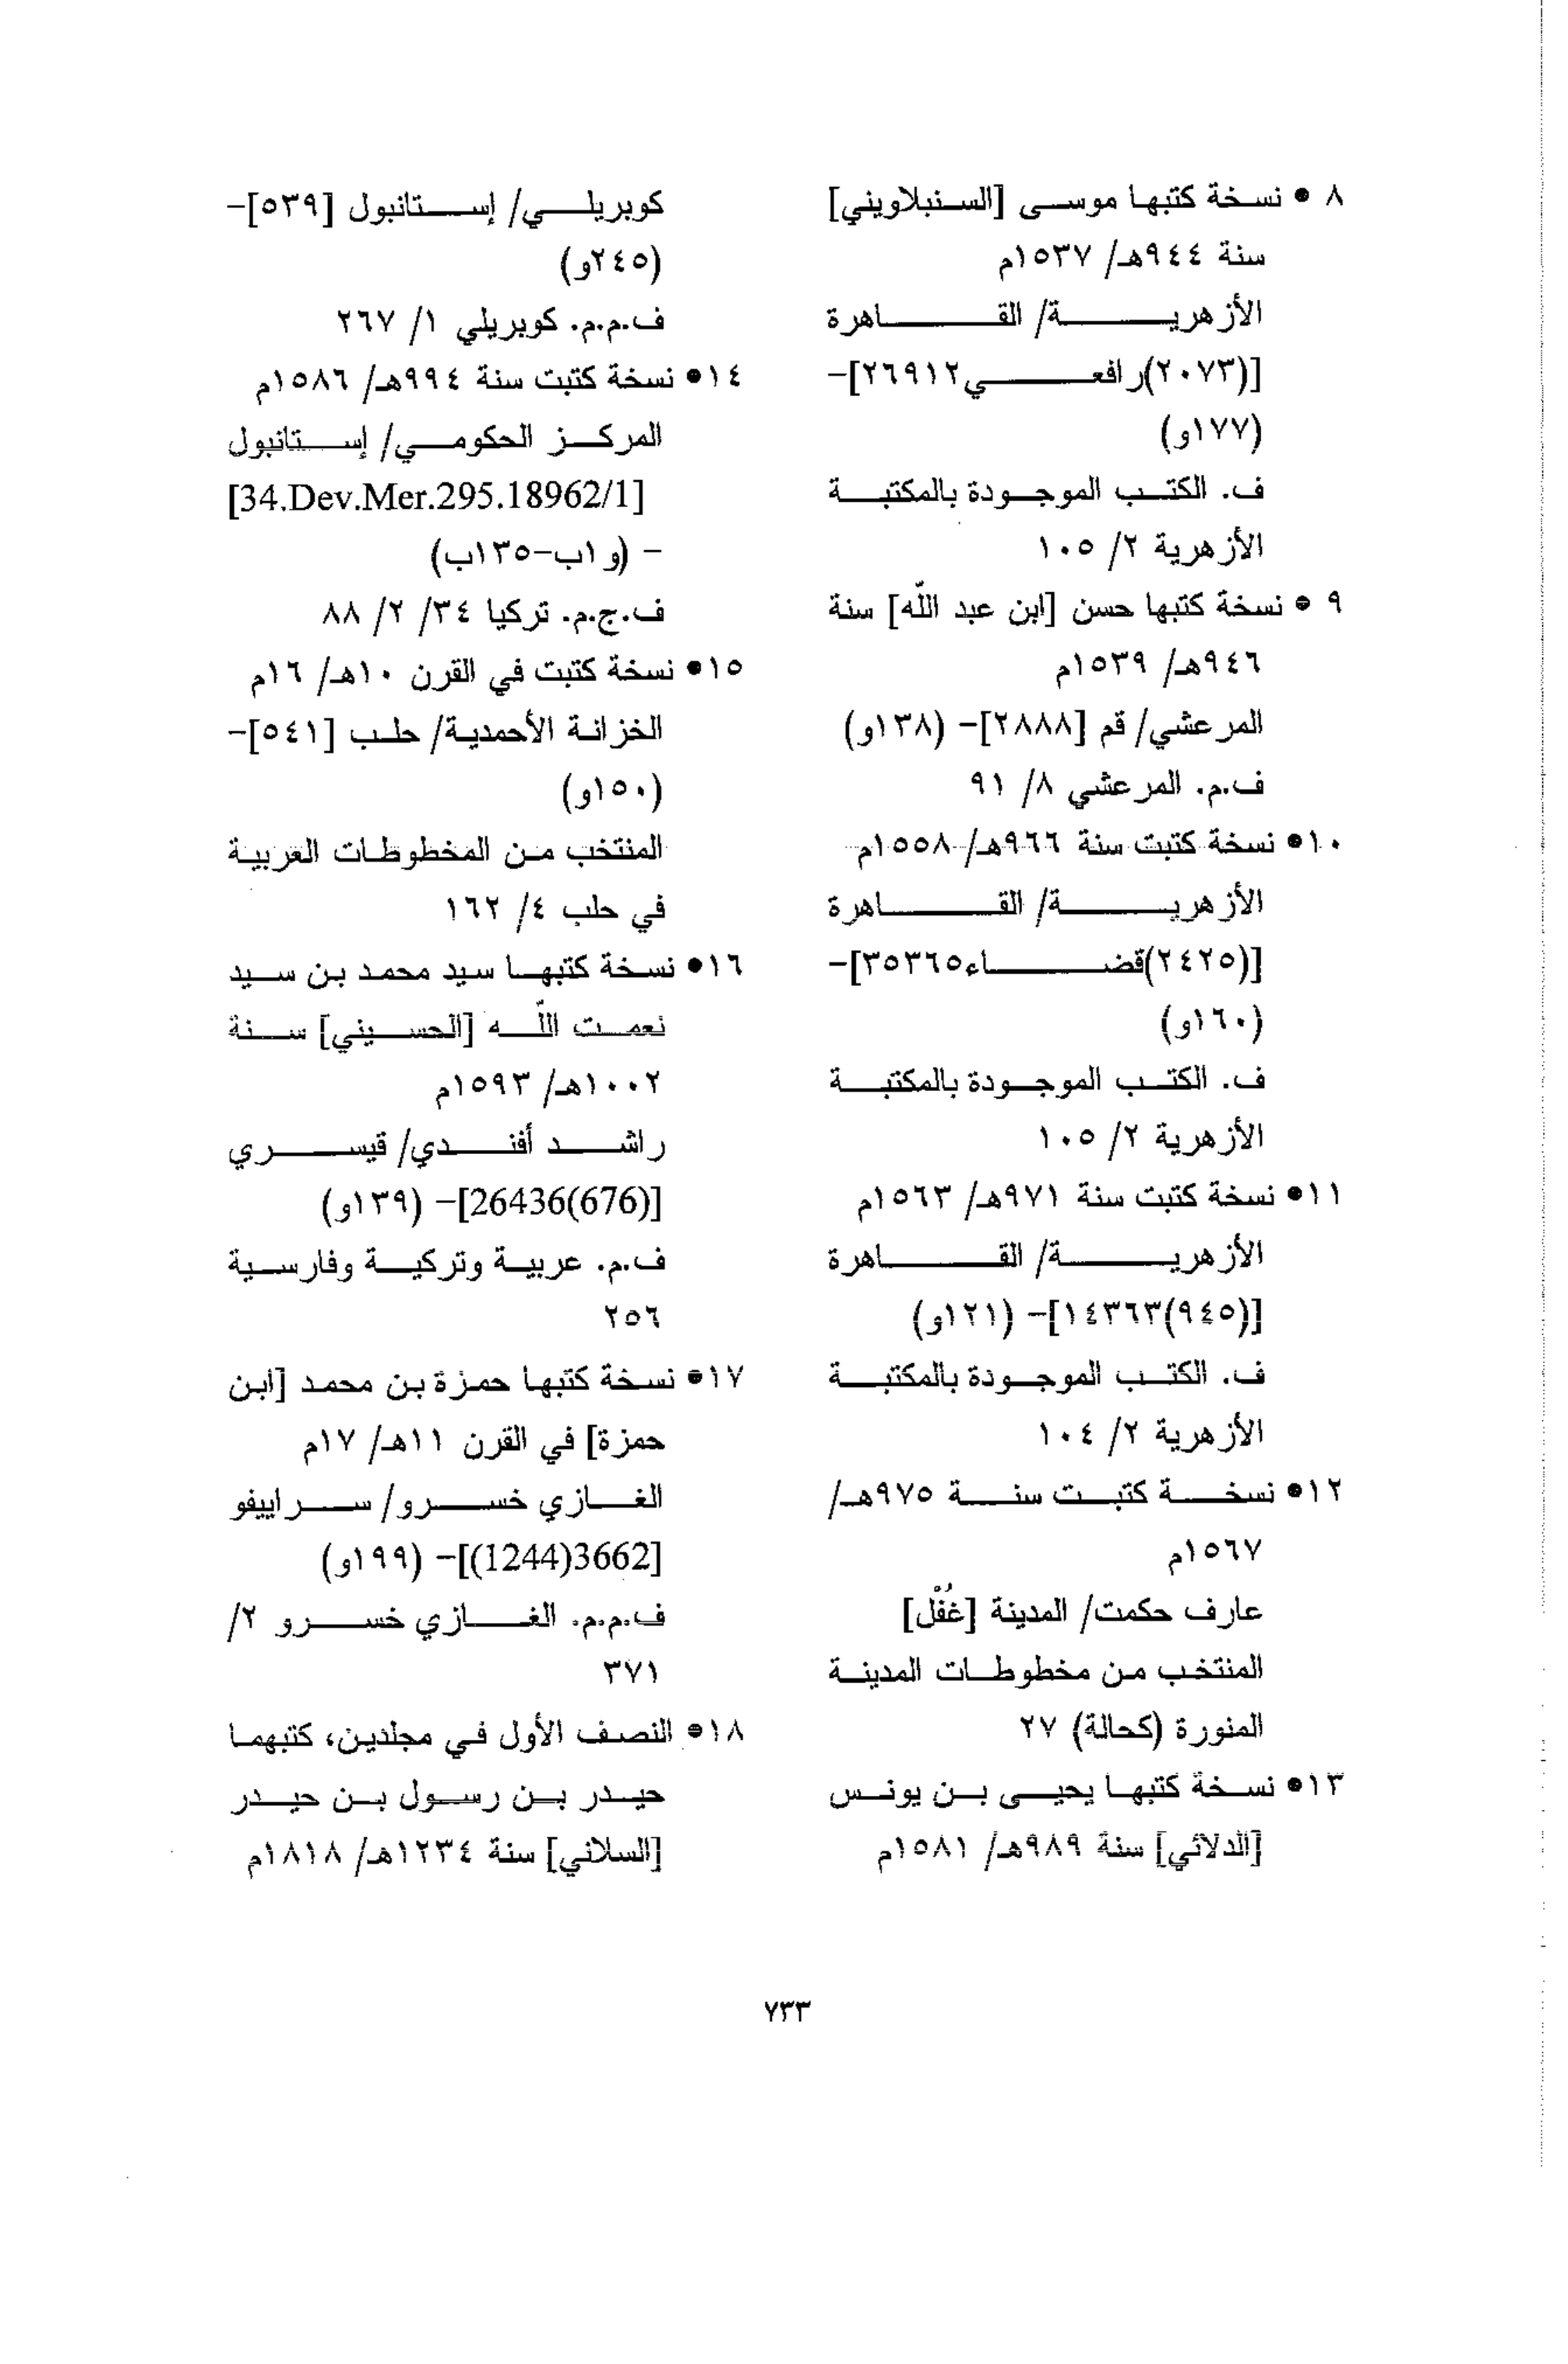 ٨ • نسخة كتبها موسى [السنبلاويني]
سنة ٩٤٤هـ/ ١٥٣٧م
الأزهرية/ القاهرة
[(٢٠٧٣)رافعي٢٦٩١٢]-
(١٧٧و)
ف. الكتب الموجودة بالمكتبة
الأزهرية ٢/ ١٠٥
٩ • نسخة كتبها حسن [ابن عبد اللّه] سنة
٩٤٦هـ/ ١٥٣٩م
المرعشي/ قم [٢٨٨٨]- (١٣٨و)
ف.م. المرعشي ٨/ ٩١
١٠• نسخة كتبت سنة ٩٦٦هـ/ ١٥٥٨م
الأزهرية/ القاهرة
[(٢٤٢٥)قضاء٣٥٣٦٥]-
(١٦٠و)
ف. الكتب الموجودة بالمكتبة
الأزهرية ٢/ ١٠٥
١١• نسخة كتبت سنة ٩٧١هـ/ ١٥٦٣م
الأزهرية/ القاهرة
[(٩٤٥)١٤٣٦٣]- (١٢١و)
ف. الكتب الموجودة بالمكتبة
الأزهرية ٢/ ١٠٤
١٢• نسخة كتبت سنة ٩٧٥هـ/
١٥٦٧م
عارف حكمت/ المدينة [غُفْل]
المنتخب من مخطوطات المدينة
المنورة (كحالة) ٢٧
١٣• نسخة كتبها يحيى بن يونس
[الدلائي] سنة ٩٨٩هـ/ ١٥٨١م
كوبريلي/ إستانبول [٥٣٩]-
(٢٤٥و)
ف.م.م. كوبريلي ١/ ٢٦٧
١٤• نسخة كتبت سنة ٩٩٤هـ/ ١٥٨٦م
المركز الحكومي/ إستانبول
[34.Dev.Mer.295.18962/1]
- (و١ب-١٣٥ب)
ف.ج.م. تركيا ٣٤/ ٢/ ٨٨
١٥• نسخة كتبت في القرن ١٠هـ/ ١٦م
الخزانة الأحمدية/ حلب [٥٤١]-
(١٥٠و)
المنتخب من المخطوطات العربية
في حلب ٤/ ١٦٢
١٦• نسخة كتبها سيد محمد بن سيد
نعمت اللّه [الحسيني] سنة
١٠٠٢هـ/ ١٥٩٣م
راشد أفندي/ قيسري
[26436(676)]- (١٣٩و)
ف.م. عربية وتركية وفارسية
٢٥٦
١٧• نسخة كتبها حمزة بن محمد [ابن
حمزة] في القرن ١١هـ/ ١٧م
الغازي خسرو/ سراييفو
[3662(1244)]- (١٩٩و)
ف.م.م. الغازي خسرو ٢/
٣٧١
١٨• النصف الأول في مجلدين، كتبهما
حيدر بن رسول بن حيدر
[السلاني] سنة ١٢٣٤هـ/ ١٨١٨م
٧٣٣